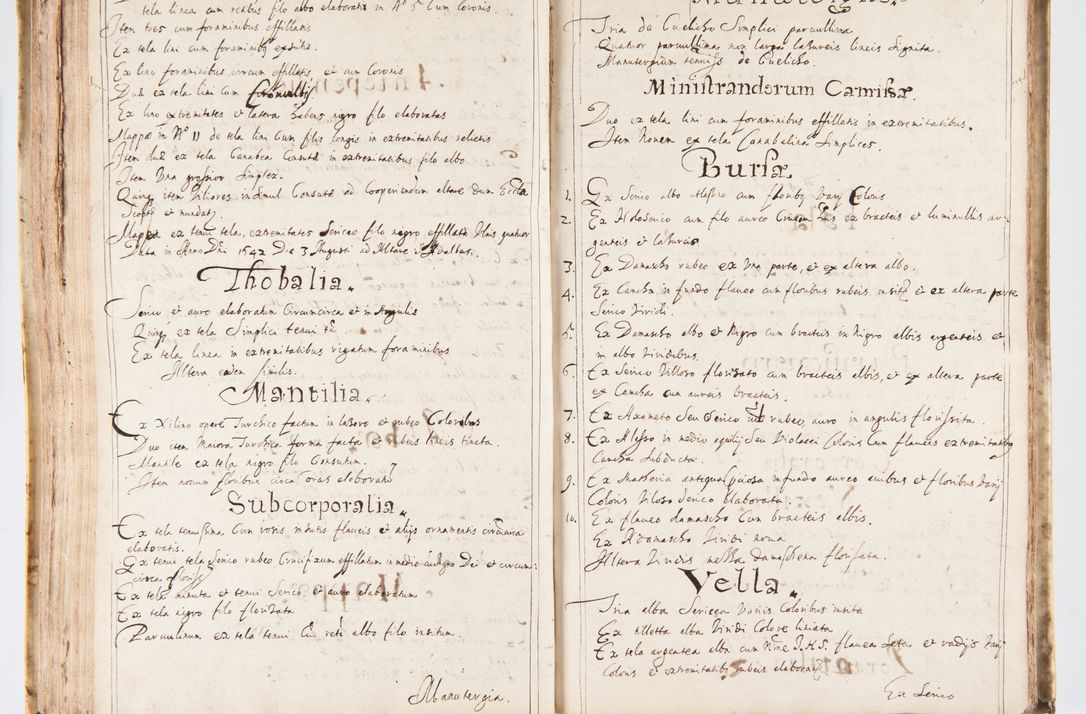 tela linea cum retibus filo albo elaboratis in Nº 5 Cum Coronis
Item tres cum foraminibus effillatis
Ex tela lini cum foraminibꝫ
Ex lino foraminibus circum effillatis et cum Coronis
Duæ ex tela lini Cum
Ex lino extremitates et latera habens nigro filo elaboratas
Mappæ in Nº 11 de tela lini Cum filis longis in extremitatibus relictis
Item duæ ex tela Canabea Consutæ in extremitatibus filo albo
Item Una grossior Simplex.
Quinqꝫ item Viliores insimul Consutæ ad Cooperiendum altare dum Eccla
et mundatꝫ
Mappa ex tenui tela, extremitates Sericeo filo nigro effillatæ Plais quatuor
Data in Anno Dñi 1542 Die 3 Augusti ad Altare S. Adalberti.
Thobalia.
Serico et auro elaboratum Circumcirca et in Angulis
Quinqꝫ ex tela Simplici tenui
Ex tela linea in extremitatibus rigatum foraminibus
Altera eidem similis.
Mantilia.
Ex Xilino opere Turchico factum in lazuro et rubeo Coloribus
Duo item Maiora Turchica forma facta et rubeis lineis tincta.
Mantile ex tela nigro filo Consutum.
Item novum floribus circa oras elaboratū
Subcorporalia.
Ex tela tenuissima Cum rosis minutis flaueis et alijs ornamentis circumcirca
elaboratis.
Ex tenui tela Serico rubeo Crucifixum effillatum in medio cum Agno Dei et circum:
circa
Ex tela minuta et tenui Serico, et auro elaboratum
Ex tela nigro filo floridata
Parvulinum ex tela tenui Cū rete albo filo insitum.
Manutergia.
Tria de Cuelicho Simplici parvullima
Quatuor parvullima non larga lazureis lineis Signita.
Manutergium tenuiss de Cuelicho.
Ministrandorum Camisæ.
Duo ex tela lini cum foraminibus effillatis in extremitatibus.
Item Nonem ex tela Canabalina Simplices.
Bursæ
1. Ex Serico albo atlassino cum floribꝫ Varij Coloris
2. Ex Holosenico cum filo aureo ex bracteis et luminullis ar:
genteis et lazureis
3. Ex Damascho rubeo ex Una parte, et ex altera albo.
4. Ex Cancha in fundo flaueo cum floribus rubeis insitꝫ et ex altera parte
Serico Viridi.
5. Ex Damascho albo et Nigro cum bracteis in Nigro albis argenteis et
in albo Viridibus.
6. Ex Serico Villoso floridato cum bracteis albis, et ex altera parte
ex Cancha cum aureis bracteis.
7. Ex Axameto Seu Serico rubeo, auro in angulis florissita.
8. Ex Alesso in medio aquilij Seu Violacei Coloris Cum flaueis extremitatibꝫ
Cancha Subducta.
9. Ex Matheria antiqua in fundo aureo auibus et floribus Varij
Coloris Viloso Serico Elaborata.
10. Ex flaueo damascho Cum bracteis albis.
Ex Adamascho Viridi noua
Altera Viridis damaschena florisata.
Vella.
Tria alba Sericea Varijs Coloribus insita
Ex alba Viridi Colore liniata
Ex tela argentea alba cum Noīe I.H.S. flauea Seta et radijs Varij
Coloris et extremitatibꝫ rubeis elaborat.
Ex Serico